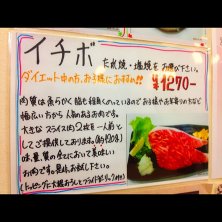 イチボ
たれ焼・塩焼をお選び下さい。
ダイエット中の方、お子様におすすめ!!
¥1270-
肉質は柔らかく脂も程良くのっているので お子様やお年寄りの方など
幅広い方から人気のあるお肉です。
大きなスライス肉2枚を一人前と
してご提供しております。
味、量、質の全てにおいて美味しい
お肉です。是非、お試し下さい。
(トッピングに大根おろしとフライドガーリック